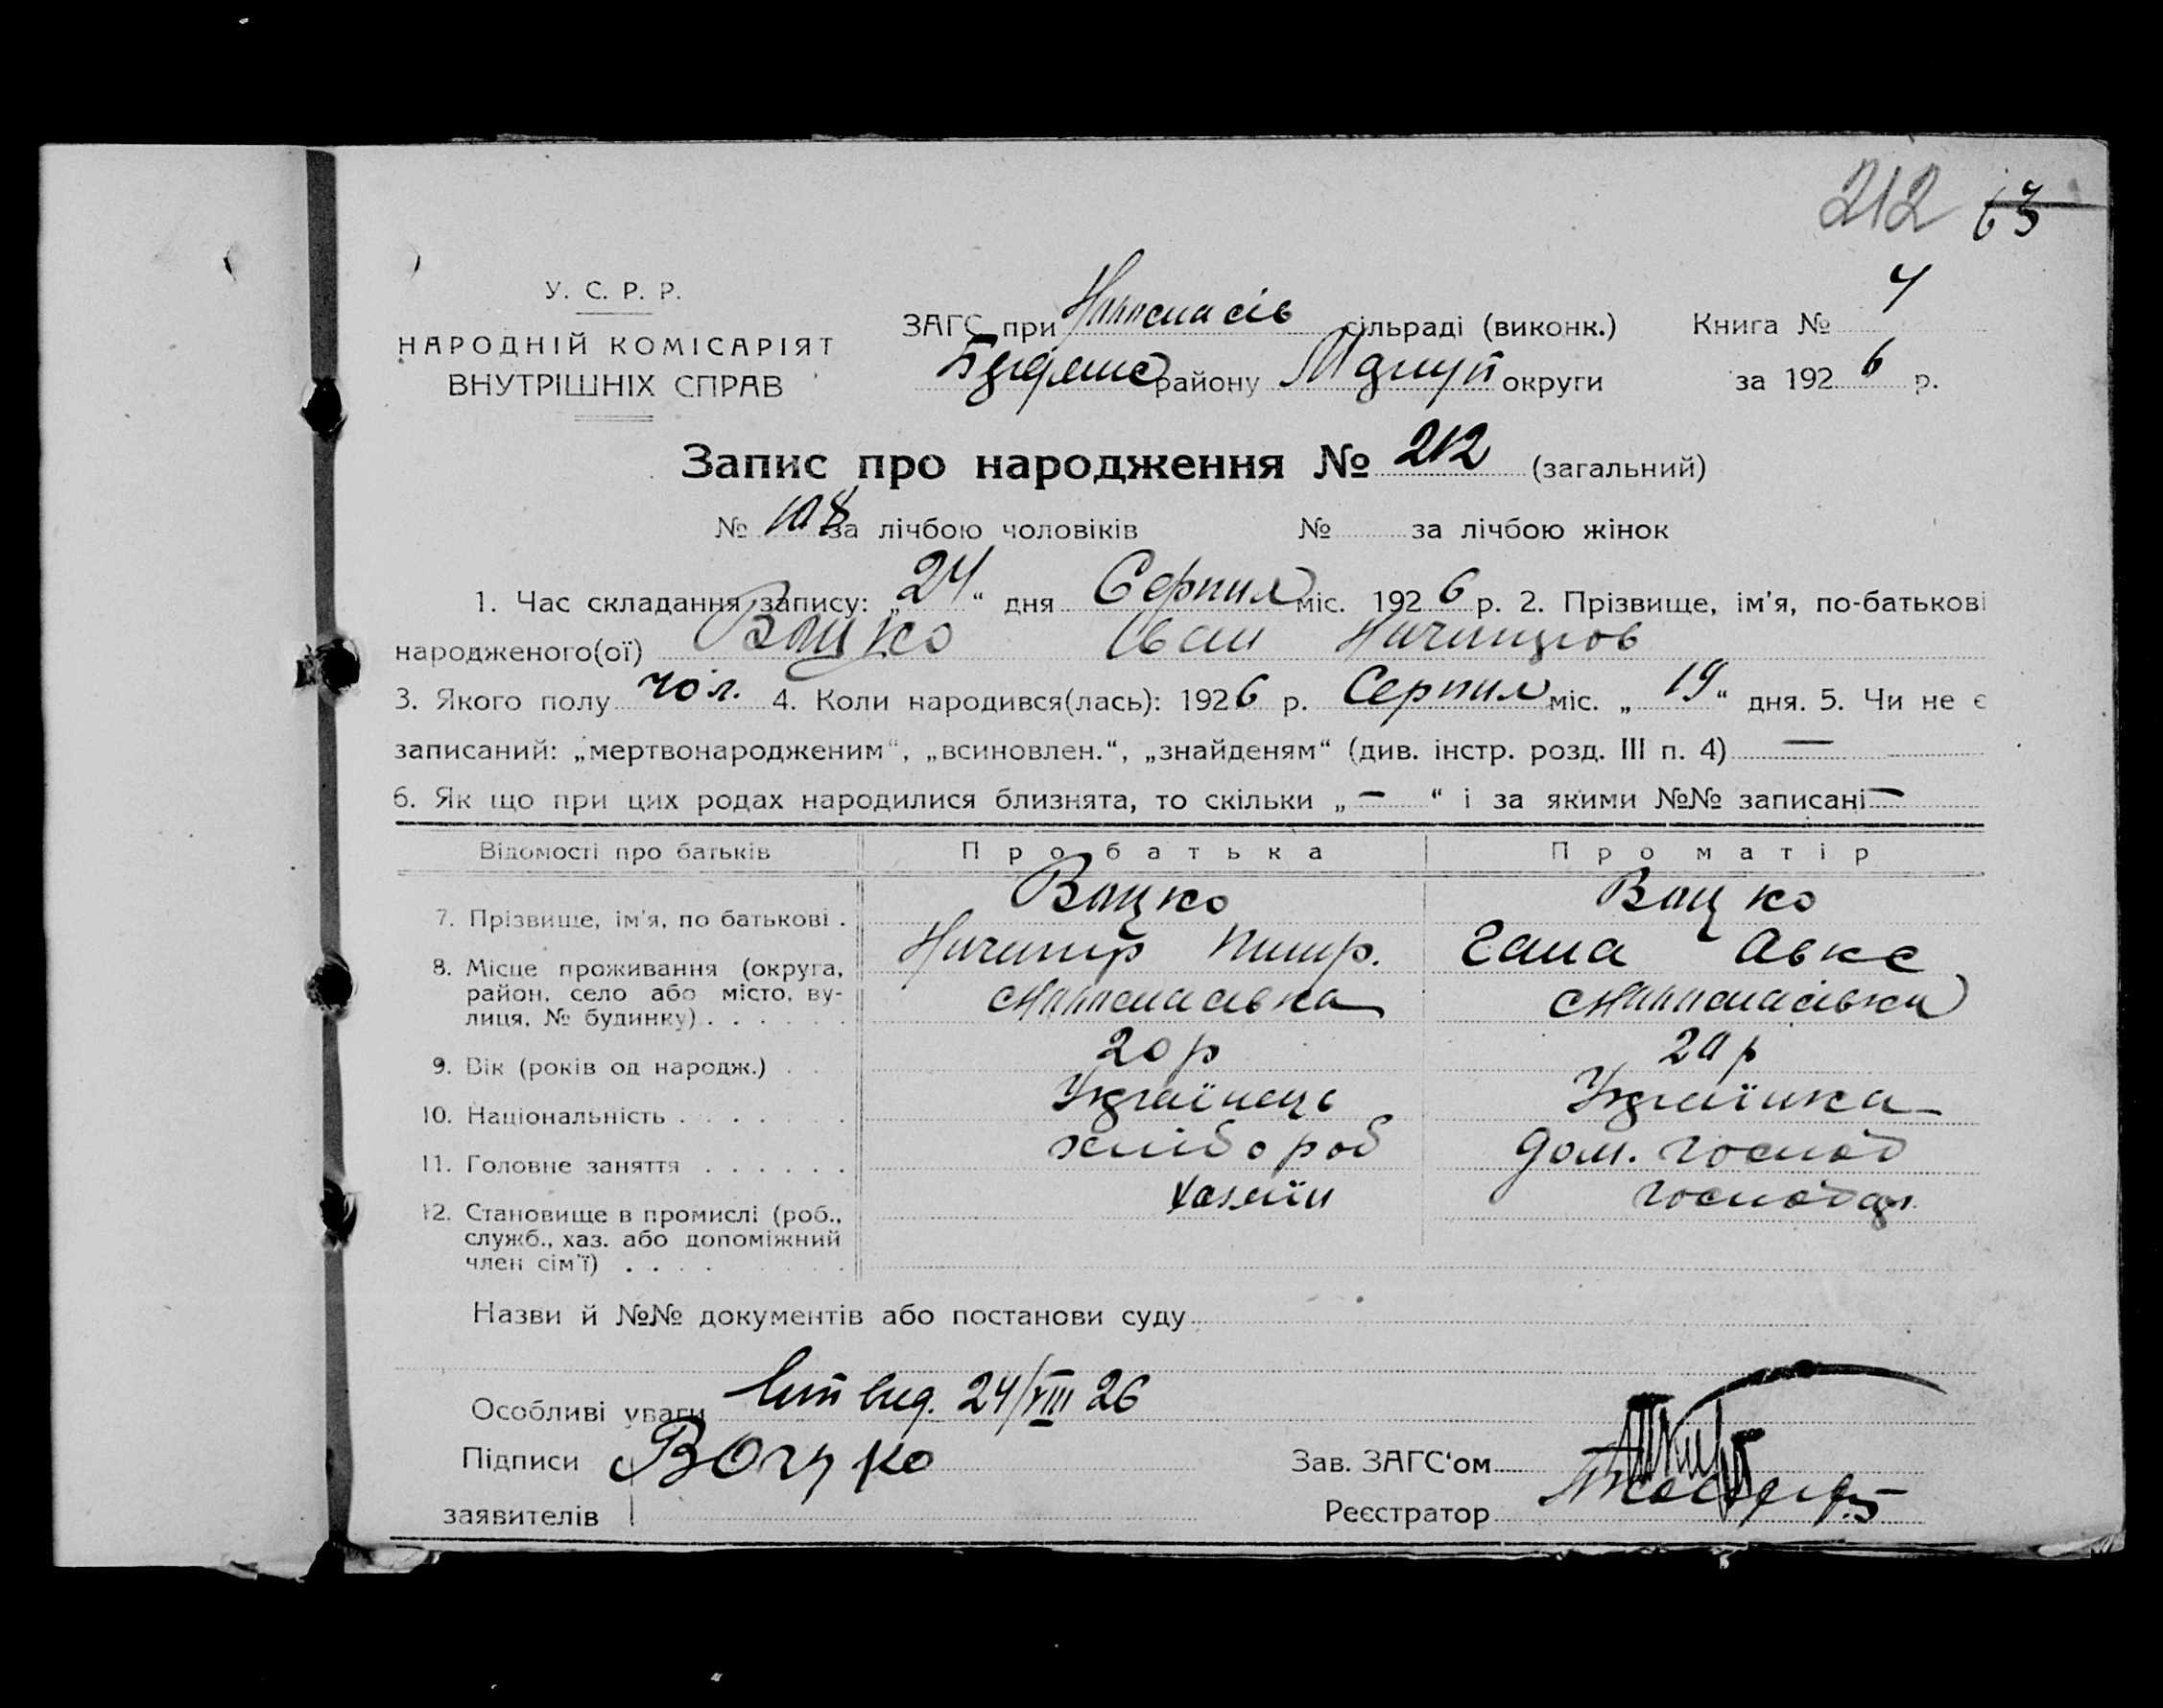 212 63
У. С. Р. Р.
НАРОДНІЙ КОМІСАРІЯТ
ВНУТРІШНІХ СПРАВ
ЗАГС при сільраді (виконк.) Книга № 4
району округи за 1926 р.
Запис про народження № 212 (загальний)
№ 108 за лічбою чоловіків № за лічбою жінок
1. Час складання запису: „24“ дня Серпня міс. 1926 р. 2. Прізвище, ім'я, по-батькові
народженого(ої) Воцко Іван Ничипоров
3. Якого полу чол. 4. Коли народився(лась): 1926 р. Серпня міс. „19“ дня. 5. Чи не є
записаний: „мертвонародженим“, „всиновлен.“, „знайденям“ (див. інстр. розд. III п. 4) —
6. Як що при цих родах народилися близнята, то скільки „—“ і за якими №№ записані —
Відомості про батьків Про батька Про матір
7. Прізвище, ім'я, по батькові . Воцко Воцко
Ничипір Гана Авкс
8. Місце проживання (округа,
район, село або місто, ву-
лиця, № будинку) . . . . . .
9. Вік (років од народж.) . . 20 р 20 р
10. Національність . . . . . . . Українець Українка
11. Головне заняття . . . . . . хлібороб дом. господ
12. Становище в промислі (роб.,
служб., хаз. або допоміжний
член сім'ї) . . . . хазяїн господар
Назви й №№ документів або постанови суду
Особливі уваги вид. 24/VIII 26
Підписи Воцко Зав. ЗАГС'ом
заявителів Реєстратор